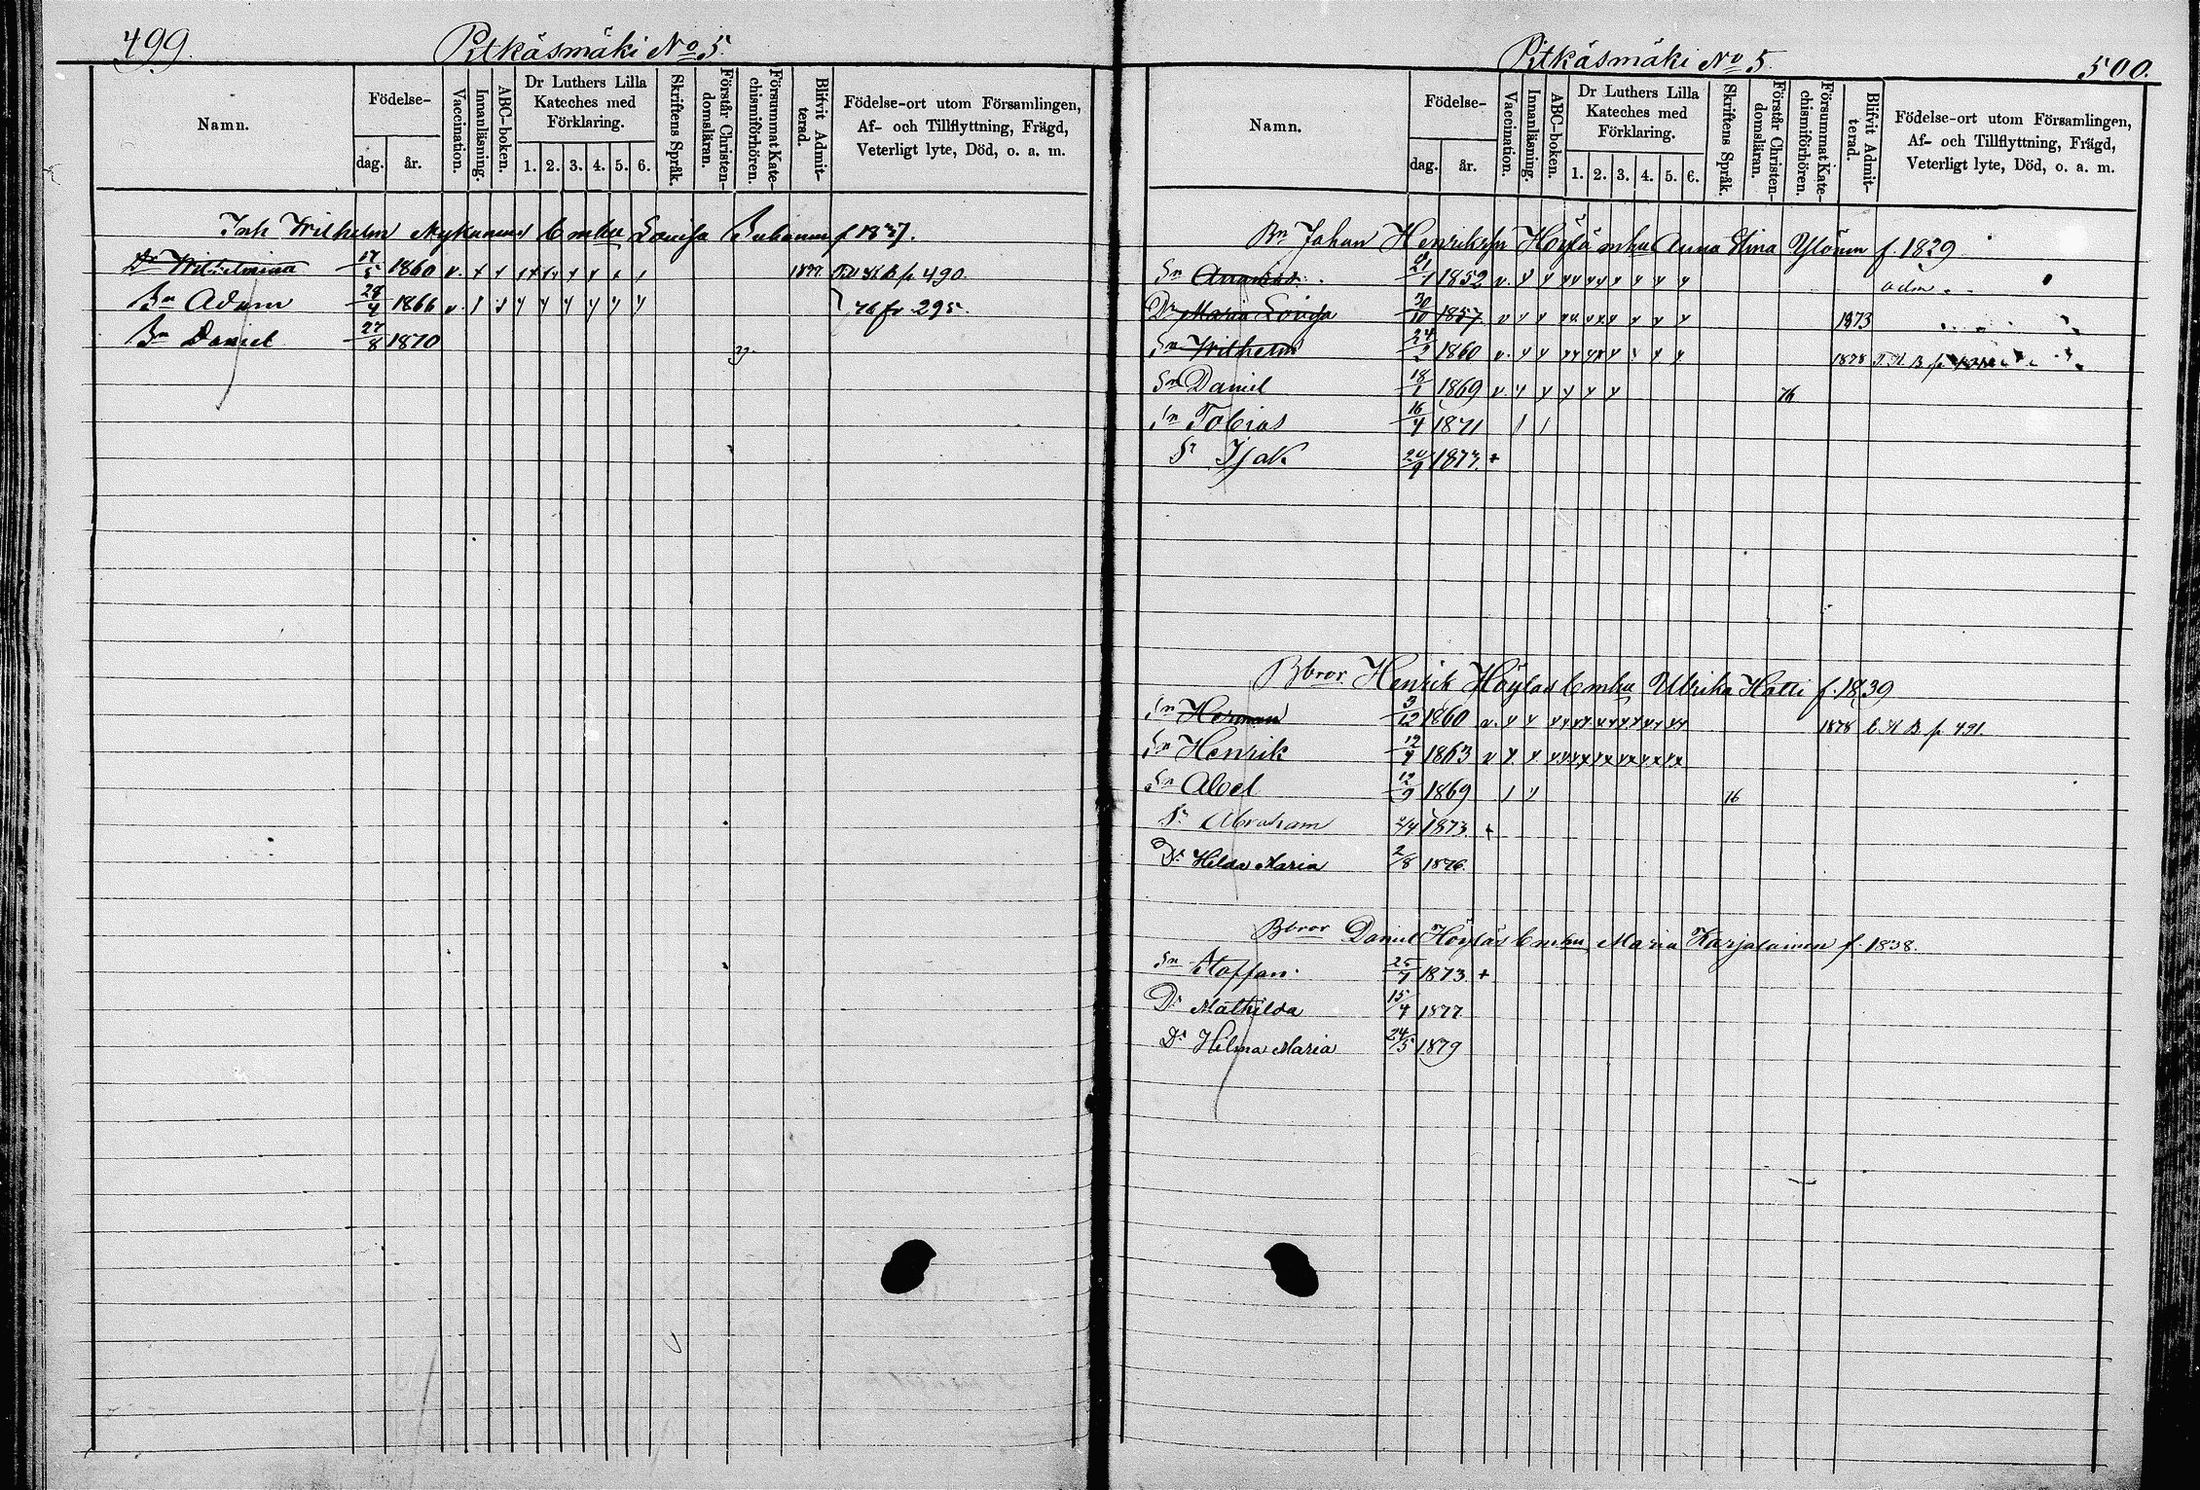 499.
Pitkäsmäki No 5.
Namn.
Födelse-
dag.
år.
Vaccination.
Innanläsning.
ABC-boken.
Dr Luthers Lilla
Kateches med
Förklaring.
1. 2. 3. 4. 5. 6.
Skriftens Språk.
Förstår Christen-
domsläran.
Försummat Kate-
chismiförhören.
Blifvit Admit-
terad.
Födelse-ort utom Församlingen,
Af- och Tillflyttning, Frägd,
Veterligt lyte, Död, o. a. m.
Inh Wilhelm Nykanens Lovisa f 1837.
Dr Wilhelmina 17/5 1860 v. 1877 p. 490.
Sn Adam 28/4 1866 v 295.
Sn Daniel 27/8 1870
Pitkäsmäki No 5.
500.
Namn.
Födelse-
dag.
år.
Vaccination.
Innanläsning.
ABC-boken.
Dr Luthers Lilla
Kateches med
Förklaring.
1. 2. 3. 4. 5. 6.
Skriftens Språk.
Förstår Christen-
domsläran.
Försummat Kate-
chismiförhören.
Blifvit Admit-
terad.
Födelse-ort utom Församlingen,
Af- och Tillflyttning, Frägd,
Veterligt lyte, Död, o. a. m.
Bn Johan Henriksn Höylä enhu Anna Stina Ylönen f. 1829
Sn Ananias 21/1 1852 v. adm
Dr Maria Lovisa 30/10 1857 v 1873
Sn Wilhelm 1860 v. 1878
Sn Daniel 18/1 1869 v. 76
Sn Tobias 16/4 1871
Sn Isak 1873 +
Bbror Henrik Höyläs enhu Ulrika Hatti f. 1839
Sn Herman 3/12 1860 v. 1878 p. 491.
Sn Henrik 1863 v
Sn Abel 12/9 1869 76
Sn Abraham 1873 +
Dr Hilda Maria 2/8 1876.
Bbror Daniel Höyläs enhu Maria Karjalainen f. 1838.
Sn Staffan 1873 +
Dr Mathilda 15/4 1877
Dr Hilma Maria 24/5 1879